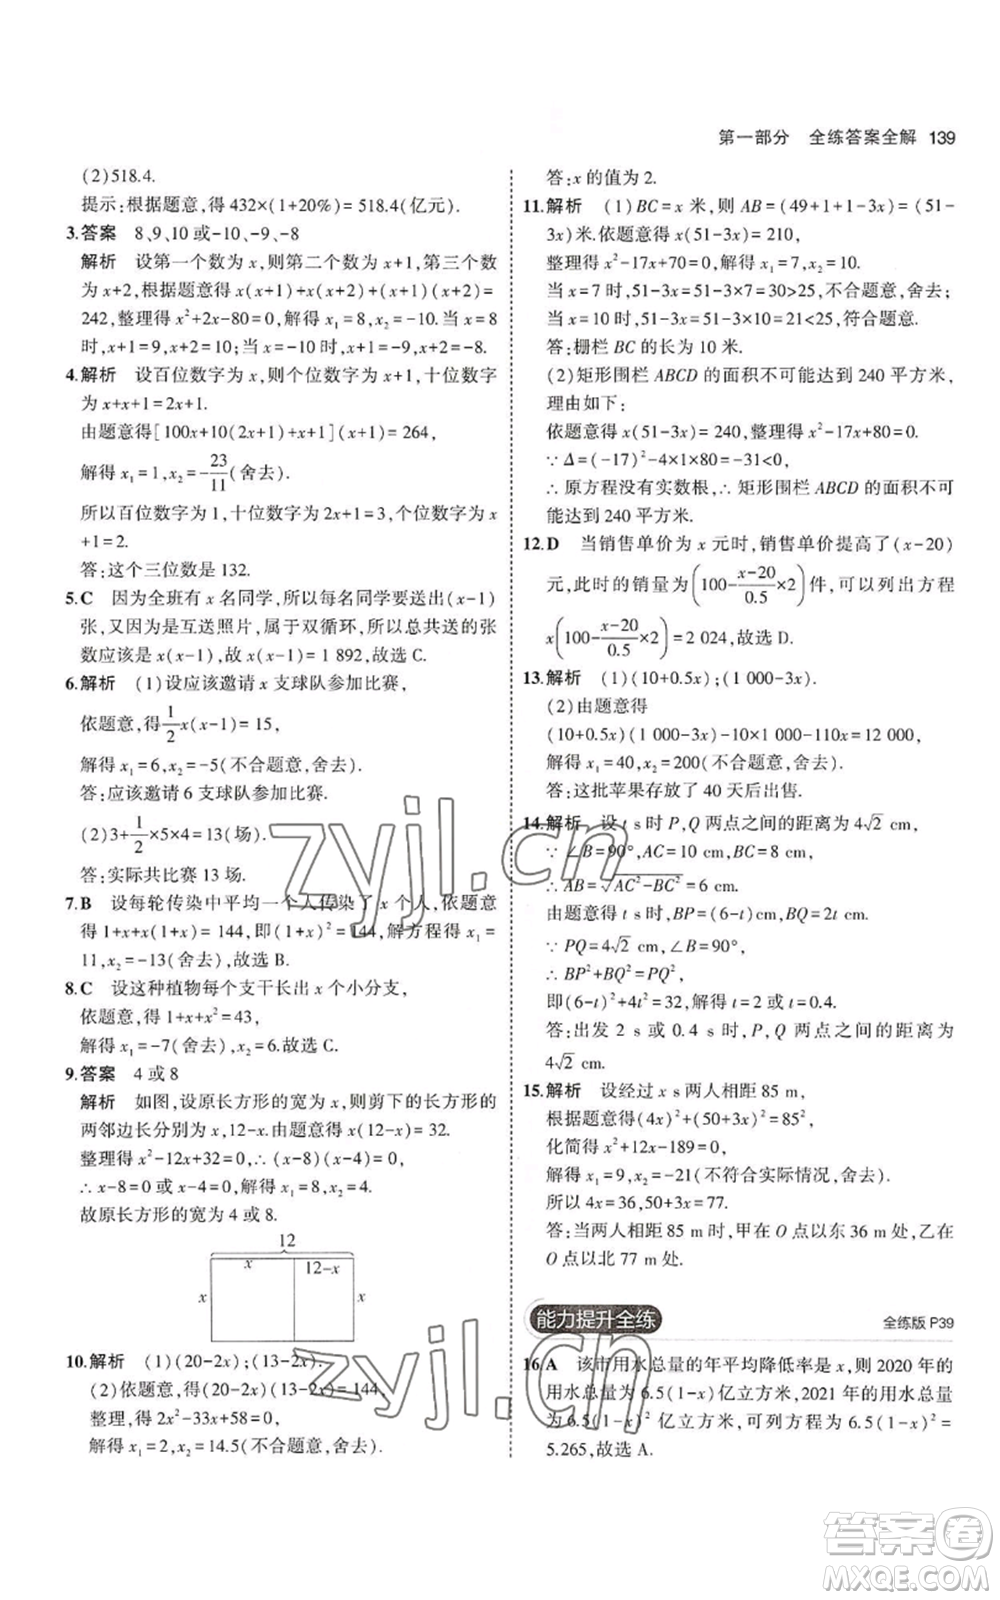 第一部分 全练答案全解 139
(2)518.4.
提示:根据题意,得 432×(1+20%)= 518.4(亿元).
3.答案 8、9、10 或-10、-9、-8
解析 设第一个数为 x,则第二个数为 x+1,第三个数
为 x+2,根据题意得 x(x+1)+x(x+2)+(x+1)(x+2)=
242,整理得 x²+2x-80=0,解得 x₁=8,x₂=-10.当 x=8
时,x+1=9,x+2=10;当 x=-10 时,x+1=-9,x+2=-8.
4.解析 设百位数字为 x,则个位数字为 x+1,十位数字
为 x+x+1=2x+1.
由题意得[100x+10(2x+1)+x+1](x+1)=264,
解得 x₁=1,x₂=-23/11(舍去).
所以百位数字为 1,十位数字为 2x+1=3,个位数字为 x
+1=2.
答:这个三位数是 132.
5.C 因为全班有 x 名同学,所以每名同学要送出(x-1)
张,又因为是互送照片,属于双循环,所以总共送的张
数应该是 x(x-1),故 x(x-1)=1 892,故选 C.
6.解析 (1)设应该邀请 x 支球队参加比赛,
依题意,得 1/2 x(x-1)=15,
解得 x₁=6,x₂=-5(不合题意,舍去).
答:应该邀请 6 支球队参加比赛.
(2)3+1/2×5×4=13(场).
答:实际共比赛 13 场.
7.B 设每轮传染中平均一个人传染了 x 个人,依题意
得 1+x+x(1+x)=144,即(1+x)²=144,解方程得 x₁=
11,x₂=-13(舍去),故选 B.
8.C 设这种植物每个支干长出 x 个小分支,
依题意,得 1+x+x²=43,
解得 x₁=-7(舍去),x₂=6.故选 C.
9.答案 4 或 8
解析 如图,设原长方形的宽为 x,则剪下的长方形的
两邻边长分别为 x,12-x.由题意得 x(12-x)=32.
整理得 x²-12x+32=0,∴(x-8)(x-4)=0,
∴ x-8=0 或 x-4=0.解得 x₁=8,x₂=4.
故原长方形的宽为 4 或 8.
12
x 12-x
x x
10.解析 (1)(20-2x);(13-2x).
(2)依题意,得(20-2x)(13-2x)=144,
整理,得 2x²-33x+58=0,
解得 x₁=2,x₂=14.5(不合题意,舍去).
答:x 的值为 2.
11.解析 (1)BC=x 米,则 AB=(49+1+1-3x)=(51-
3x)米.依题意得 x(51-3x)=210,
整理得 x²-17x+70=0.解得 x₁=7,x₂=10.
当 x=7 时,51-3x=51-3×7=30>25,不合题意,舍去;
当 x=10 时,51-3x=51-3×10=21<25,符合题意.
答:栅栏 BC 的长为 10 米.
(2)矩形围栏 ABCD 的面积不可能达到 240 平方米,
理由如下:
依题意得 x(51-3x)=240,整理得 x²-17x+80=0.
∵ Δ=(-17)²-4×1×80=-31<0,
∴ 原方程没有实数根,∴ 矩形围栏 ABCD 的面积不可
能达到 240 平方米.
12.D 当销售单价为 x 元时,销售单价提高了(x-20)
元,此时的销量为(100-(x-20)/0.5×2)件,可以列出方程
x(100-(x-20)/0.5×2)=2 024,故选 D.
13.解析 (1)(10+0.5x);(1 000-3x).
(2)由题意得
(10+0.5x)(1 000-3x)-10×1 000-110x=12 000,
解得 x₁=40,x₂=200(不合题意,舍去).
答:这批苹果存放了 40 天后出售.
14.解析 设 t s 时 P,Q 两点之间的距离为 4√2 cm,
∵ ∠B=90°,AC=10 cm,BC=8 cm,
∴ AB=√(AC²-BC²)=6 cm.
由题意得 t s 时,BP=(6-t)cm,BQ=2t cm.
∵ PQ=4√2 cm,∠B=90°,
∴ BP²+BQ²=PQ²,
即(6-t)²+4t²=32,解得 t=2 或 t=0.4.
答:出发 2 s 或 0.4 s 时,P,Q 两点之间的距离为
4√2 cm.
15.解析 设经过 x s 两人相距 85 m,
根据题意得(4x)²+(50+3x)²=85²,
化简得 x²+12x-189=0,
解得 x₁=9,x₂=-21(不符合实际情况,舍去).
所以 4x=36,50+3x=77.
答:当两人相距 85 m 时,甲在 O 点以东 36 m 处,乙在
O 点以北 77 m 处.
能力提升全练 全练版 P39
16.A 该市用水总量的年平均降低率是 x,则 2020 年的
用水总量为 6.5(1-x)亿立方米,2021 年的用水总量
为 6.5(1-x)² 亿立方米,可列方程为 6.5(1-x)²=
5.265,故选 A.
zyjl.cn
zyjl.cn
答案卷
MXQE.COM